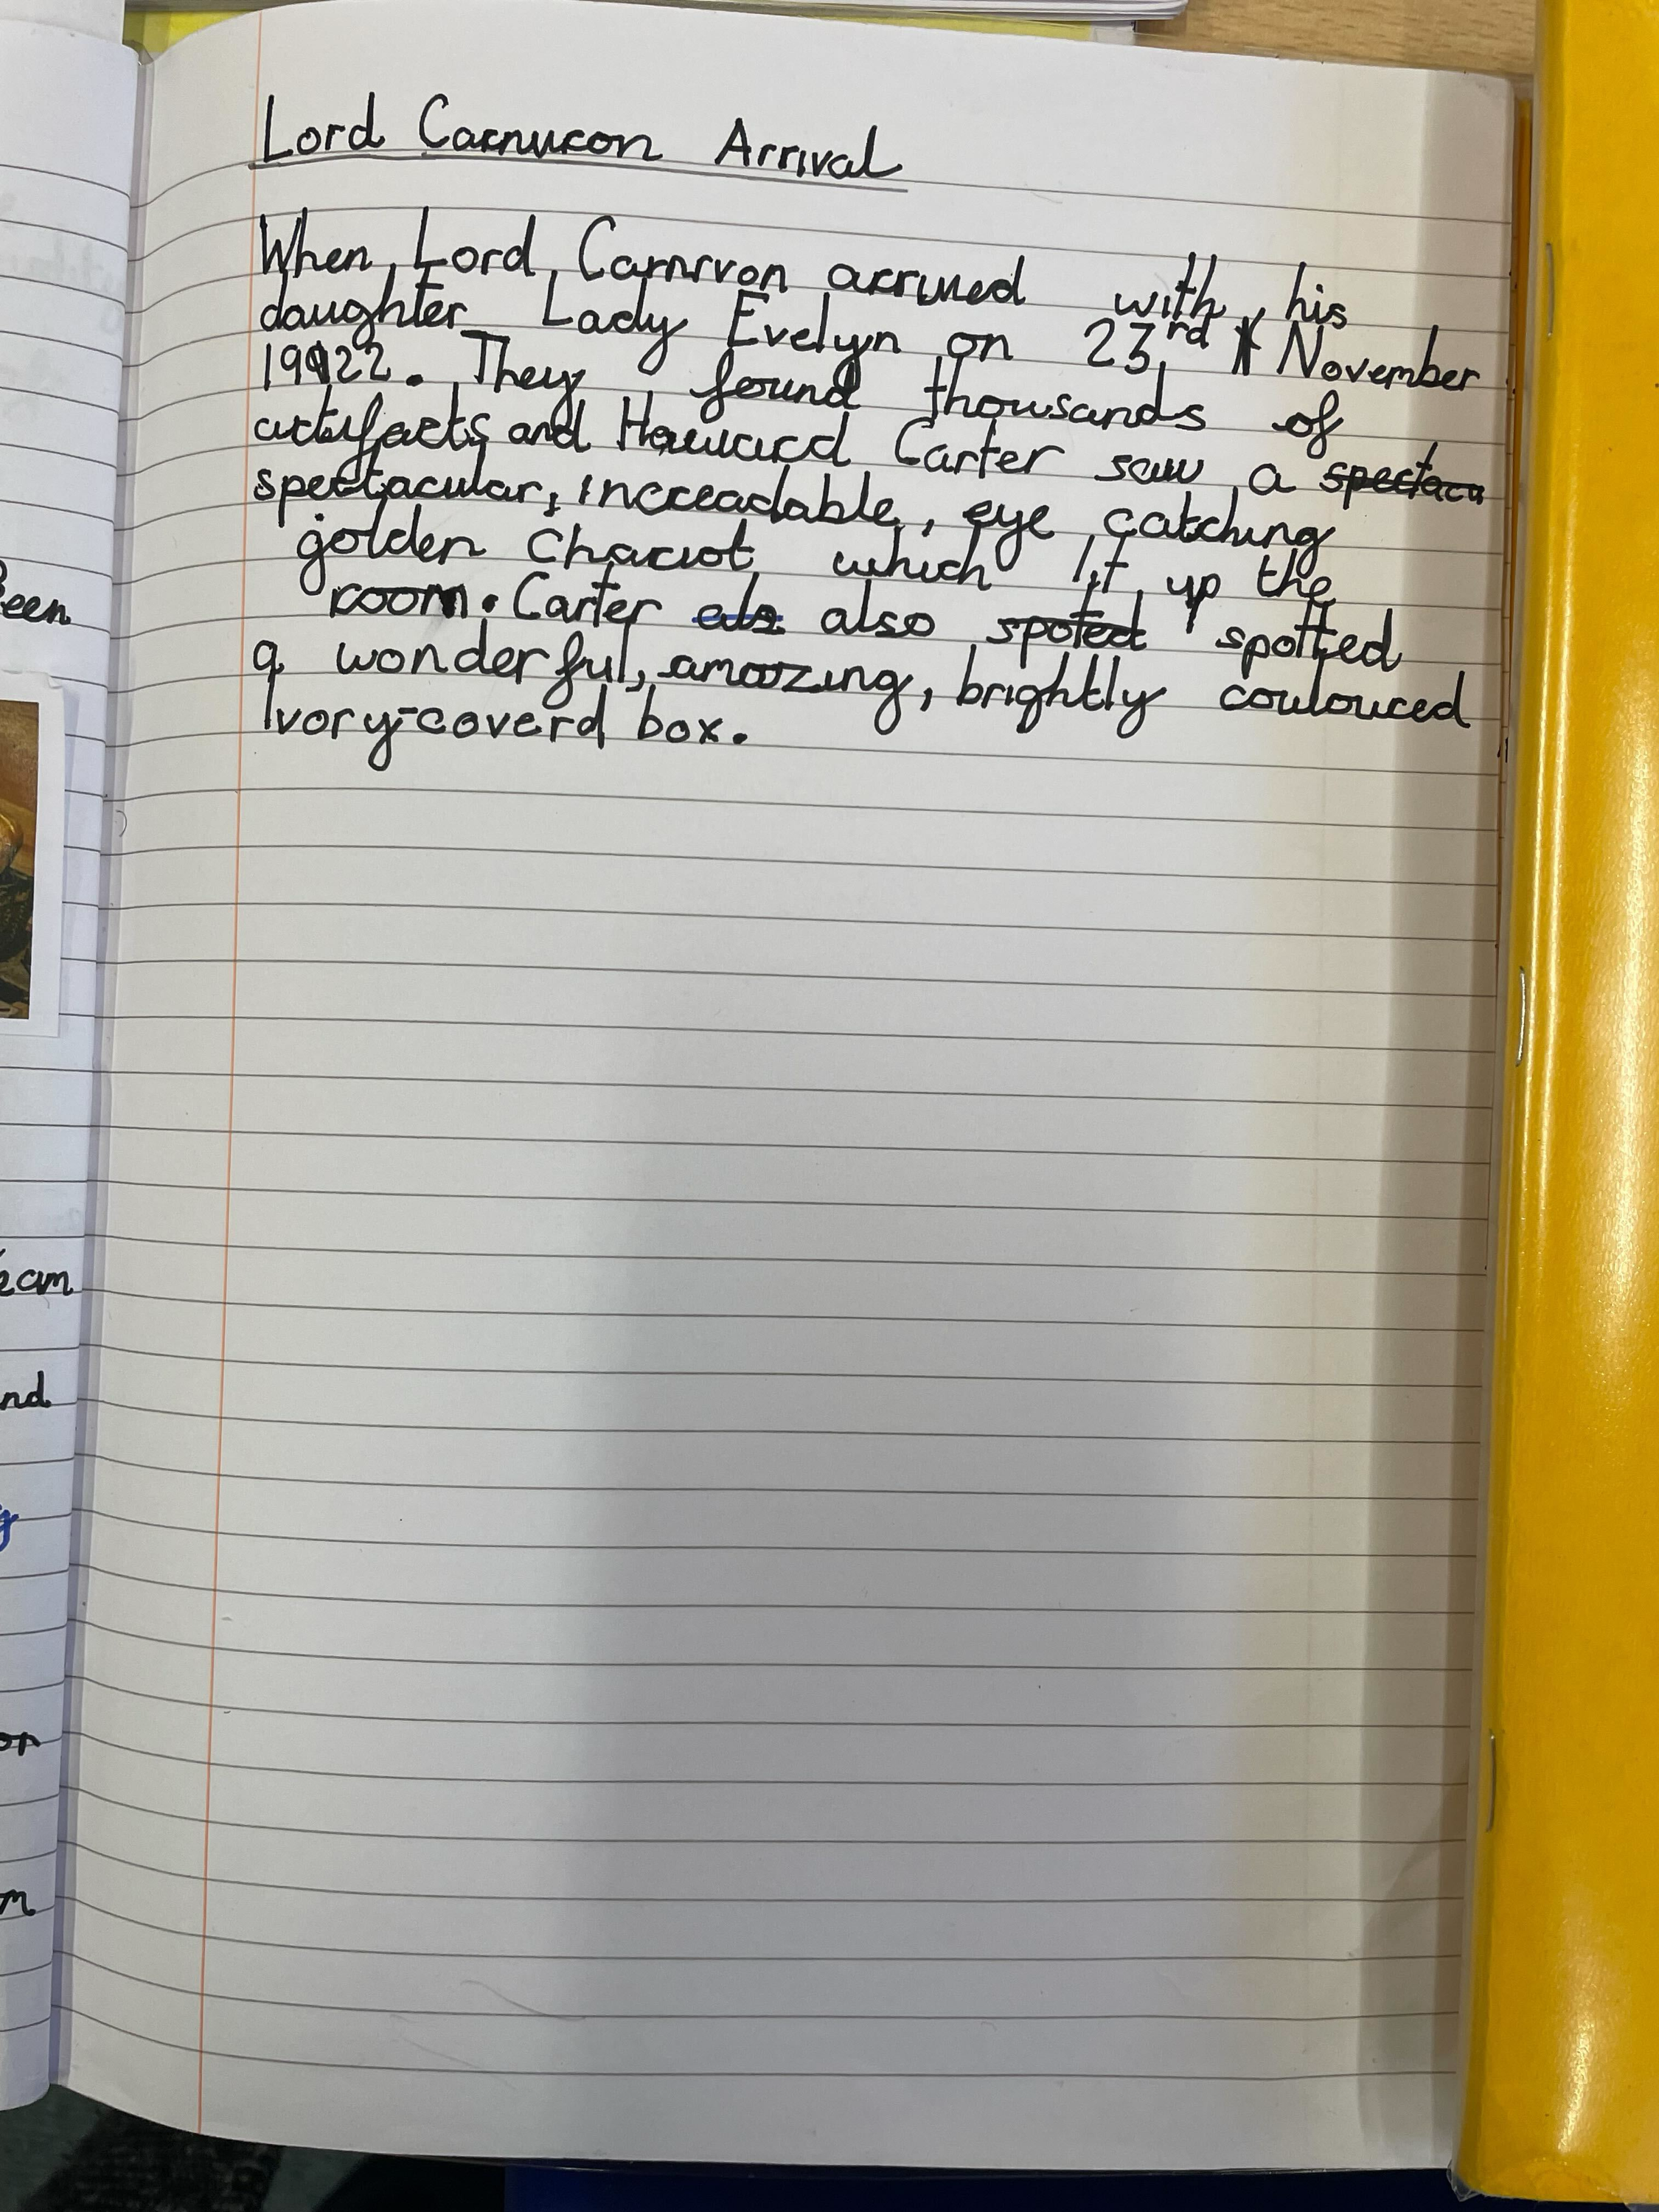 Lord Carnuron Arrival
When Lord Carnrvon arrived with his
daughter Lady Evelyn on 23rd November
1922. They found thousands of
artifacts and Howard Carter saw a spectacu
spectacular, increadable, eye catching
golden chariot which lit up the
room. Carter als also spoted spotted
a wonderful, amazing, brightly couloured
Ivory-coverd box.
een
eam
nd
g
or
m